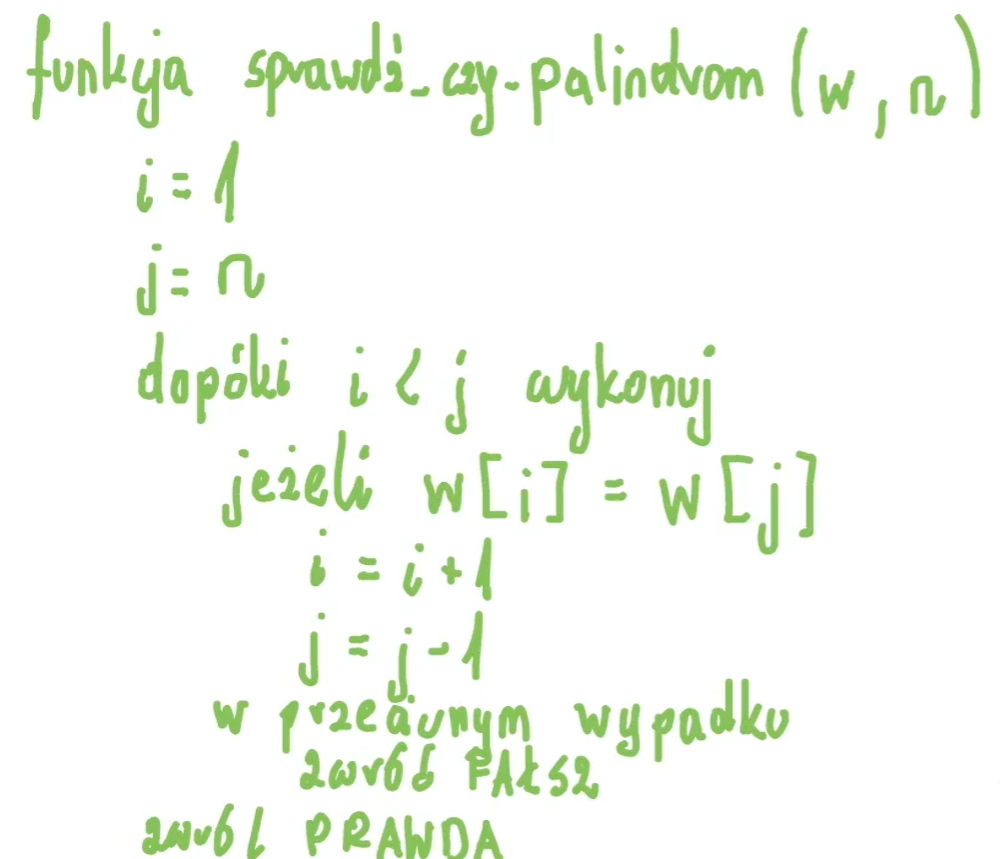 funkcja sprawdź_czy_palindrom (w, n)
i = 1
j = n
dopóki i < j wykonuj
jeżeli w[i] = w[j]
i = i + 1
j = j - 1
w przeciwnym wypadku
zwróć FAŁSZ
zwróć PRAWDA